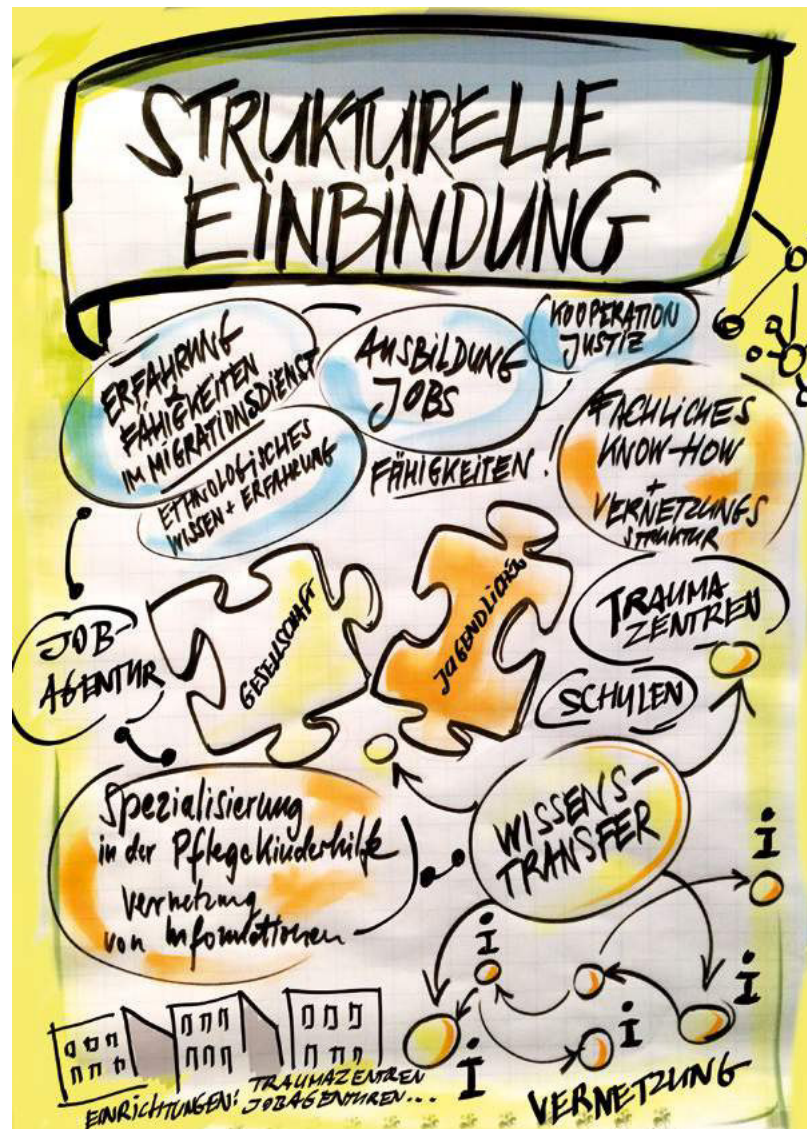 STRUKTURELLE
EINBINDUNG
ERFAHRUNG
+
FÄHIGKEITEN
IM MIGRATIONSDIENST
ETHNOLOGISCHES
WISSEN + ERFAHRUNG
AUSBILDUNG
JOBS
KOOPERATION
JUSTIZ
FÄHIGKEITEN!
FACHLICHES
KNOW-HOW
+
VERNETZUNGS
STRUKTUR
JOB-
AGENTUR
GESELLSCHAFT
JUGENDLICHE
TRAUMA
ZENTREN
SCHULEN
Spezialisierung
in der Pflegekinderhilfe
Vernetzung
von Informationen
WISSENS-
TRANSFER
i
i
i
i
i
VERNETZUNG
EINRICHTUNGEN: TRAUMAZENTREN
JOBAGENTUREN...